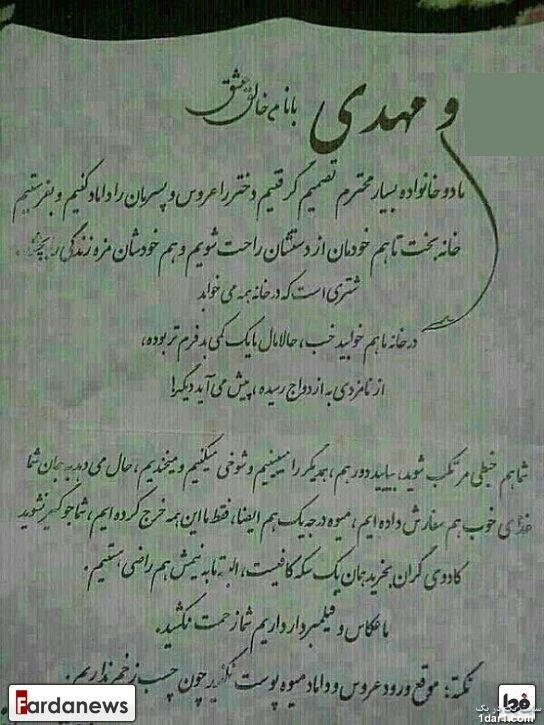 با نام خالق عشق
و مهدی
ما دو خانواده بسیار محترم تصمیم گرفتیم دختر را عروس و پسرمان را داماد کنیم و بفرستیم
خانه بخت تا هم خودمان از دستشان راحت شویم و هم خودشان مزه زندگی را
شتری است که در خانه همه می خوابد
در خانه ما هم خوابید خب، حالا مال ما یک کمی بد فرم تر بوده،
از نامزدی به ازدواج رسیده، پیش می آید دیگر!
شما هم خبطی مرتکب شوید، بیایید دور هم، همدیگر را ببینیم و شوخی میکنیم و میخندیم، حال می دهد به جان شما
غذای خوب هم سفارش داده ایم، میوه درجه یک هم ایضا، فقط ما این همه خرج کرده ایم، شما جوگیر نشوید
کادوی گران بخرید همان یک سکه کافیست، البته ما به نیمش هم راضی هستیم.
ما عکاس و فیلمبردار داریم شما زحمت نکشید.
نکته: موقع ورود عروس و داماد میوه پوست نگیرید چون چسب زخم نداریم.
Fardanews
فردا
1dar1.com